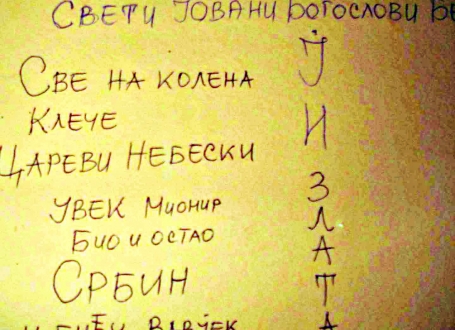 СВЕТИ ЈОВАНИ БОГОСЛОВИ
СВЕ НА КОЛЕНА
КЛЕЧЕ
ЦАРЕВИ НЕБЕСКИ
УВЕК МИОНИР
БИО И ОСТАО
СРБИН
Ј
И
З
Л
А
Т
А